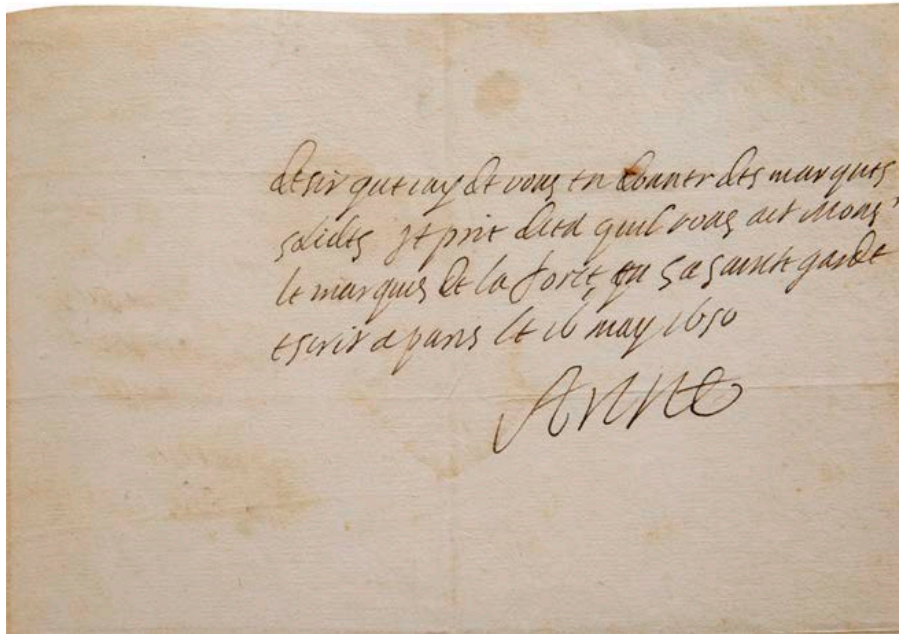 desir que iay de vous en donner des marques
solides je prie dieu quil vous ait Mons^r
le marquis de la force en sa sainte garde
escrit a paris le 16 may 1650
Anne